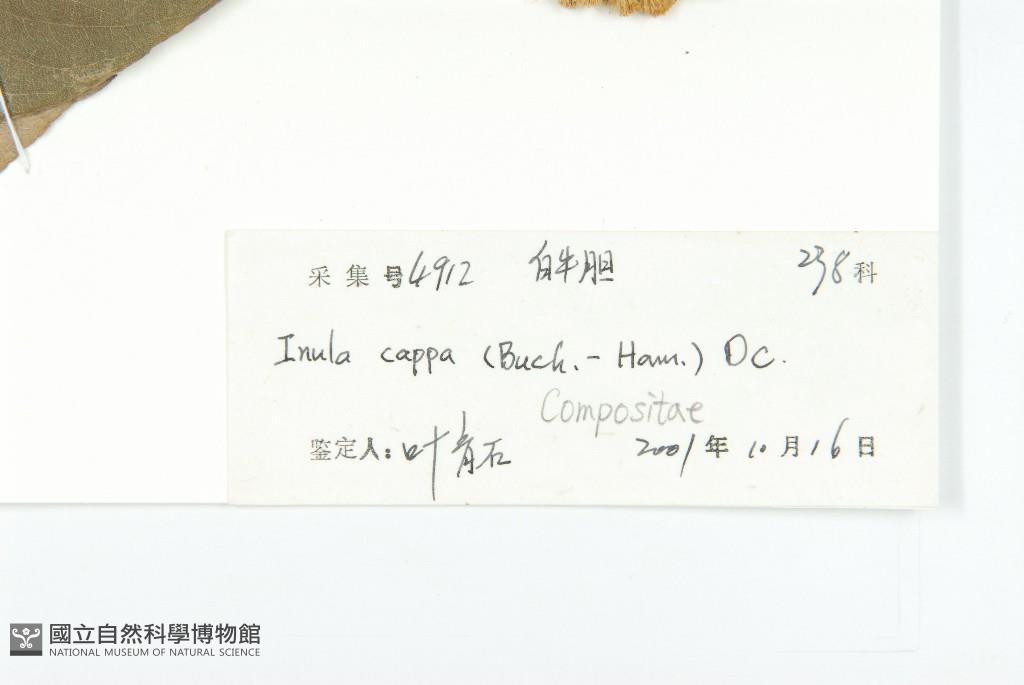 采集号4912 白牛胆 238科
Inula cappa (Buch.-Ham.) DC.
Compositae
鉴定人:叶育石 2001年10月16日
國立自然科學博物館
NATIONAL MUSEUM OF NATURAL SCIENCE